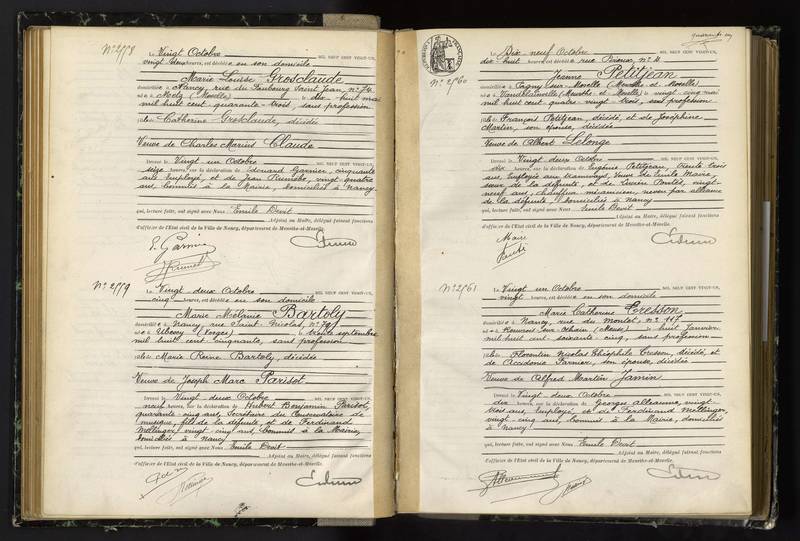 N° 2958
Le Vingt Octobre MIL NEUF CENT VINGT-UN,
vingt deux heures, est décédée en son domicile
Marie Louise Grosclaude
domiciliée à Nancy, rue du Faubourg Saint Jean, n° 74
née à Metz (Moselle) le dix huit mai
mil huit cent quarante-trois, sans profession
fille de Catherine Grosclaude, décédée
Veuve de Charles Marind Claude
Dressé le Vingt un Octobre MIL NEUF CENT VINGT-UN,
seize heures, sur la déclaration de Edouard Garnier, cinquante
ans, employé, et de Jean Kuntche, vingt-quatre
ans, commis à la Mairie, domiciliés à Nancy
qui, lecture faite, ont signé avec Nous Emile Devit
Adjoint au Maire, délégué faisant fonctions
d'officier de l'Etat civil de la Ville de Nancy, département de Meurthe-et-Moselle.
E. Garnier
N° 2959
Le Vingt deux Octobre MIL NEUF CENT VINGT-UN,
cinq heures, est décédée en son domicile
Marie Mélanie Bartoly
domiciliée à Nancy, rue Saint Nicolas, n°
née à (Vosges) le trente septembre
mil huit cent cinquante, sans profession
fille de Marie Reine Bartoly, décédée
Veuve de Joseph Marc Parisot
Dressé le Vingt deux Octobre MIL NEUF CENT VINGT-UN,
neuf heures, sur la déclaration de Hubert Benjamin Parisot,
quarante cinq ans, Secrétaire du Conservatoire de
musique, fils de la défunte et de Ferdinand
vingt cinq ans, commis à la Mairie,
domiciliés à Nancy
qui, lecture faite, ont signé avec Nous Emile Devit
Adjoint au Maire, délégué faisant fonctions
d'officier de l'Etat civil de la Ville de Nancy, département de Meurthe-et-Moselle.
N° 2960
Le Dix-neuf Octobre MIL NEUF CENT VINGT-UN,
dix huit heures, est décédée rue n° 4
Jeanne Petitjean
domiciliée à Pagny sur Moselle (Meurthe et Moselle)
née à (Meurthe et Moselle) le vingt cinq mai
mil huit cent quatre vingt trois, sans profession
fille de François Petitjean, décédé, et de Joséphine
Martin, son épouse, décédée
Veuve de Albert Lelonge
Dressé le Vingt deux Octobre MIL NEUF CENT VINGT-UN,
dix heures, sur la déclaration de Eugénie Petitjean, trente trois
ans, employée aux tramways, Veuve de Emile Maire,
sœur de la défunte, et de vingt-
neuf ans, chauffeur mécanicien, neveu par alliance
de la défunte, domiciliés à Nancy
qui, lecture faite, ont signé avec Nous Emile Devit
Adjoint au Maire, délégué faisant fonctions
d'officier de l'Etat civil de la Ville de Nancy, département de Meurthe-et-Moselle.
Maire
N° 2961
Le Vingt un Octobre MIL NEUF CENT VINGT-UN,
vingt heures, est décédée en son domicile
Marie Catherine Cresson
domiciliée à Nancy, rue du montet, n°
née à (Meuse) le huit Janvier
mil huit cent soixante cinq, sans profession
fille de Florentin Nicolas Théophile Cresson, décédé, et
de son épouse, décédée
Veuve de Alfred Martin Jamin
Dressé le Vingt deux Octobre MIL NEUF CENT VINGT-UN,
dix heures, sur la déclaration de Georges vingt
trois ans, employé, et de Ferdinand
vingt-cinq ans, commis à la Mairie, domiciliés
à Nancy
qui, lecture faite, ont signé avec Nous Emile Devit
Adjoint au Maire, délégué faisant fonctions
d'officier de l'Etat civil de la Ville de Nancy, département de Meurthe-et-Moselle.